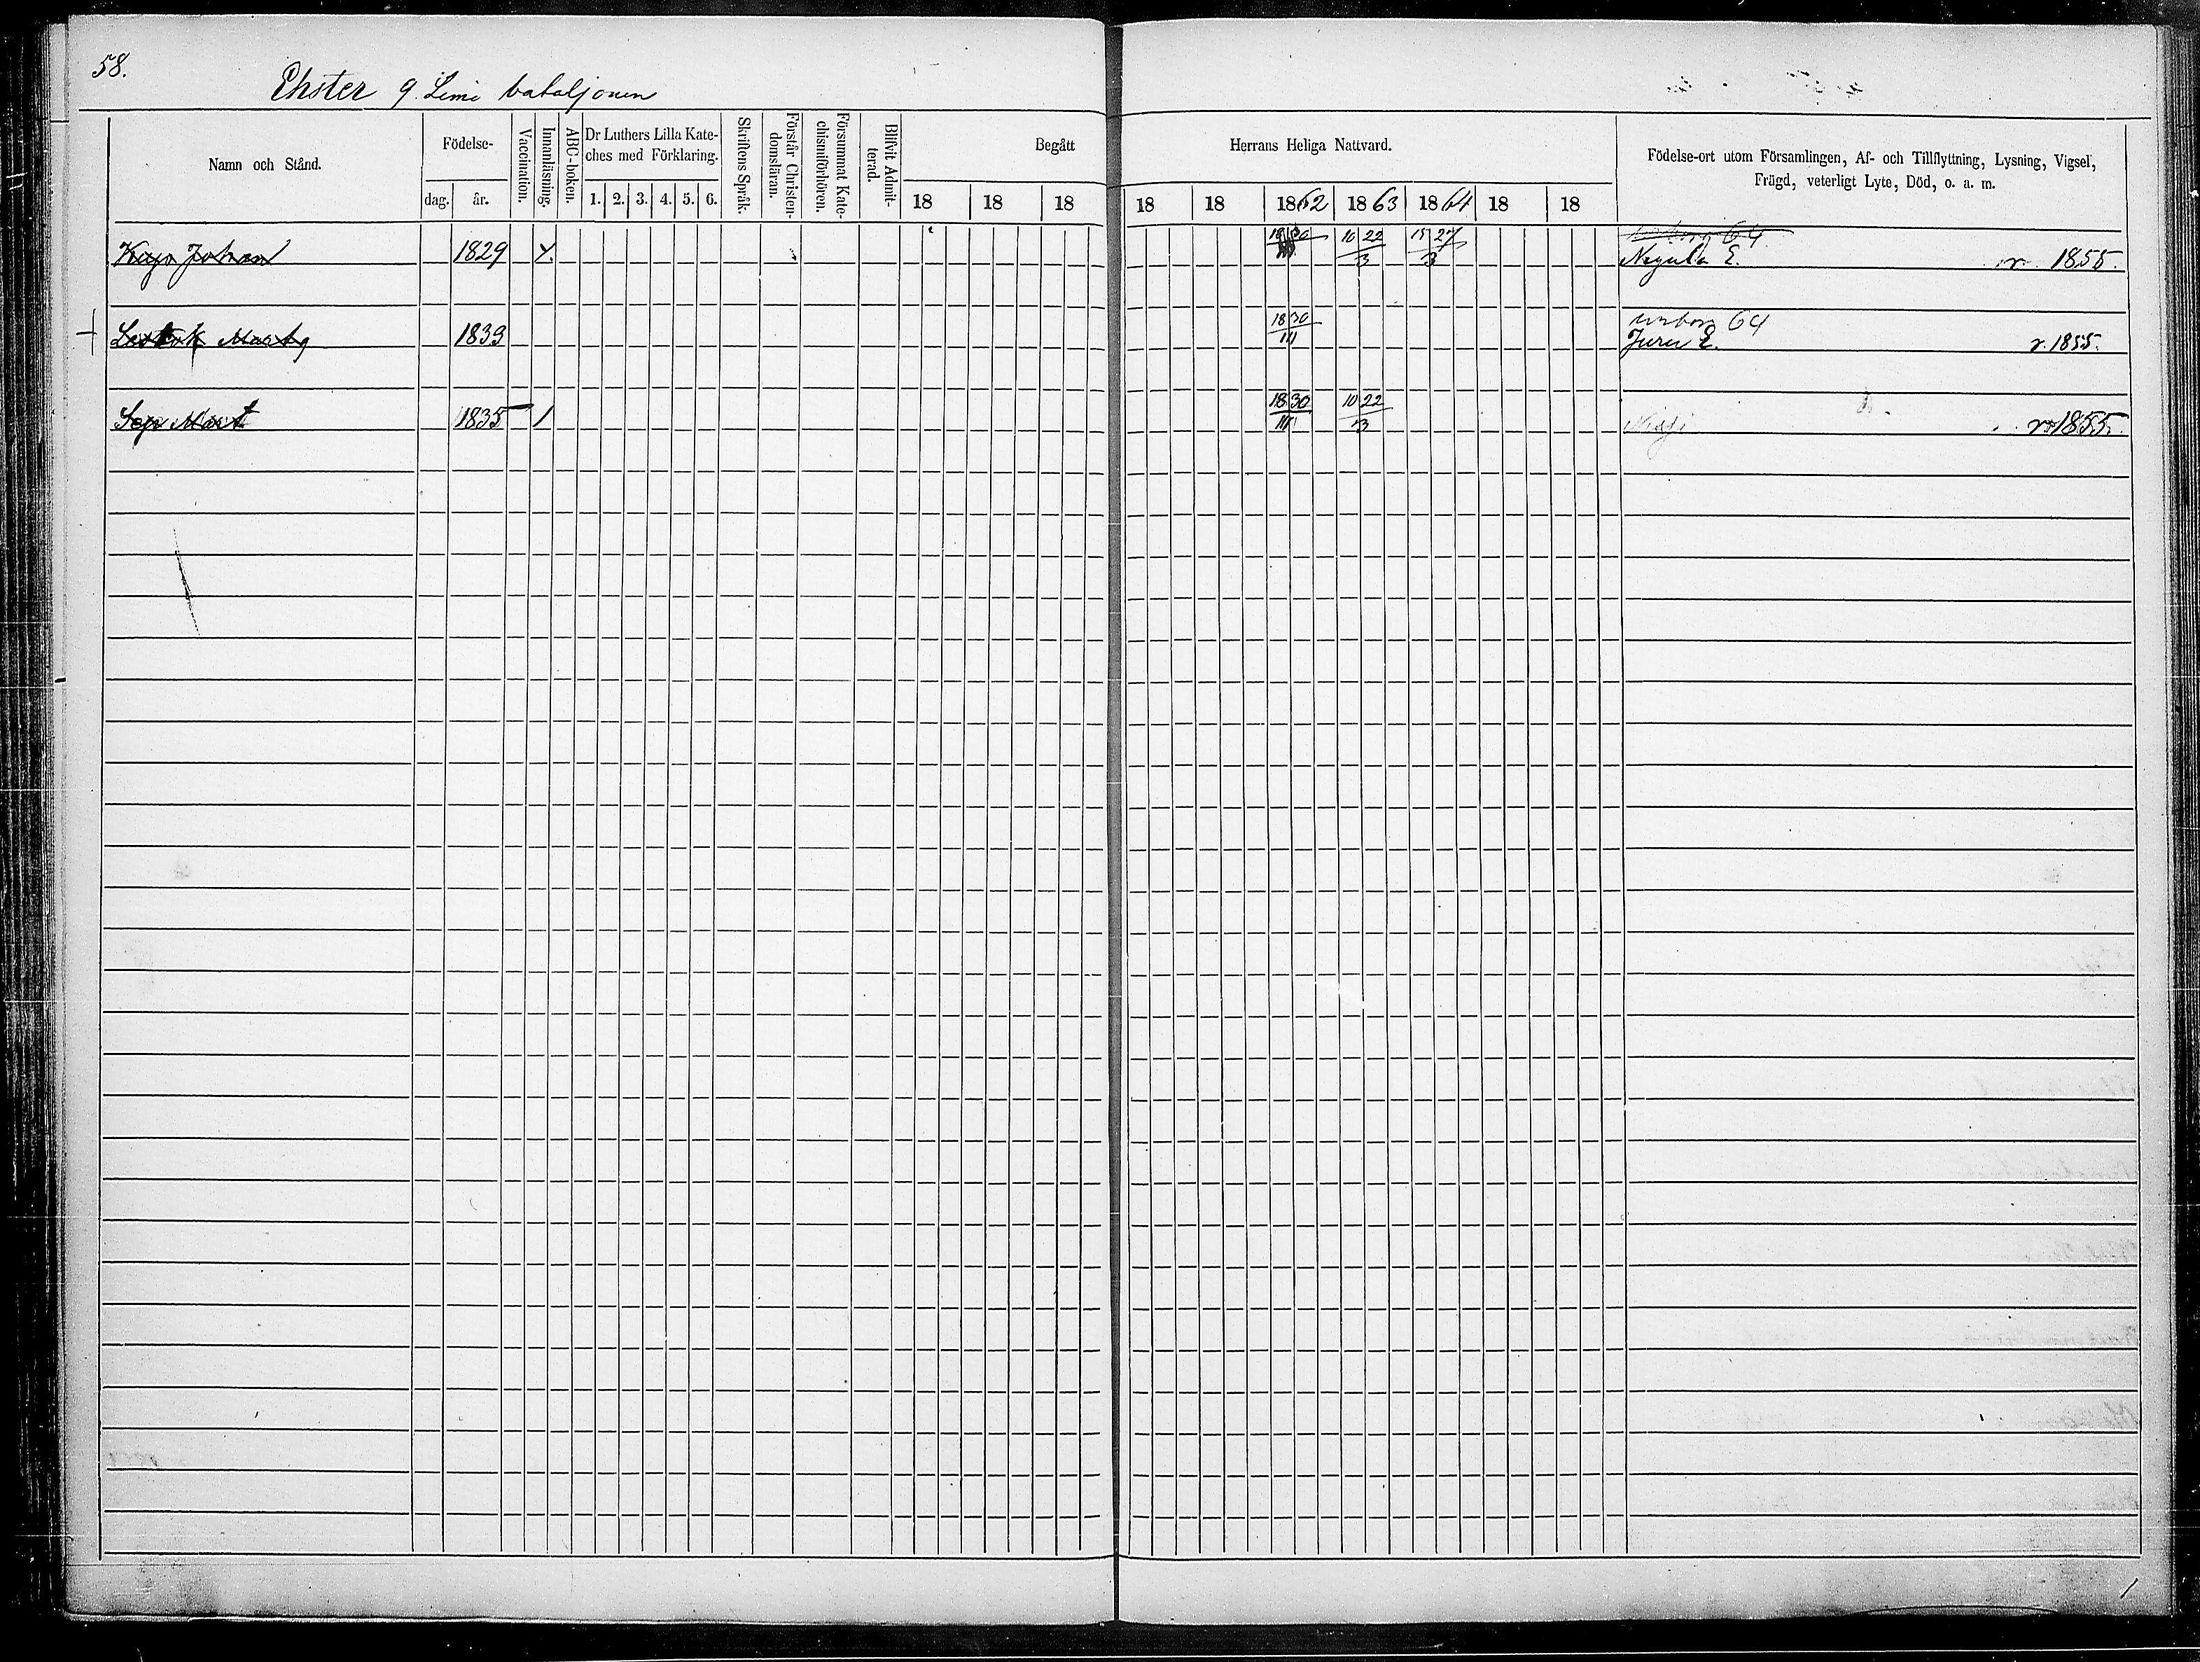 58.
Ehster 9. Linie bataljonen
Namn och Stånd.
Födelse-
dag. år.
Vaccination.
Innanläsning.
ABC-boken.
Dr Luthers Lilla Kate-
ches med Förklaring.
1. 2. 3. 4. 5. 6.
Skriftens Språk.
Förstår Christen-
domsläran.
Försummat Kate-
chismiförhören.
Blifvit Admit-
terad.
Begått Herrans Heliga Nattvard.
18 18 18 18 18 1862 1863 1864 18 18
Födelse-ort utom Församlingen, Af- och Tillflyttning, Lysning, Vigsel,
Frägd, veterligt Lyte, Död, o. a. m.
64
Johan 1829 18 30 10 22 3 15 27 3 E. r. 1855.
64
1839 18 30 III E. r. 1855.
Sep Mart 1835 1 18 30 III 10 22 3 1855.